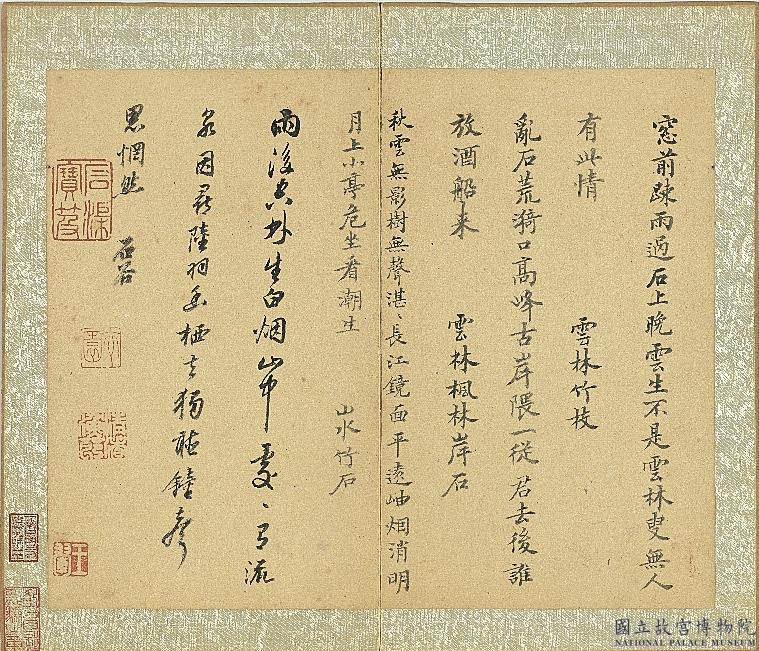 窓前疎雨過石上晚雲生不是雲林叟無人
有此情
雲林竹枝
亂石荒漪口高峰古岸隈一從君去後誰
放酒船来
雲林楓林岸石
秋雲無影樹無聲湛〻長江鏡面平遠岫烟消明
月上小亭危坐看潮生
山水竹石
雨後 外生白烟山中處〻有流
泉因尋陸羽幽栖去獨聽鐘聲
思惘然
石谷
國立故宮博物院
NATIONAL PALACE MUSEUM